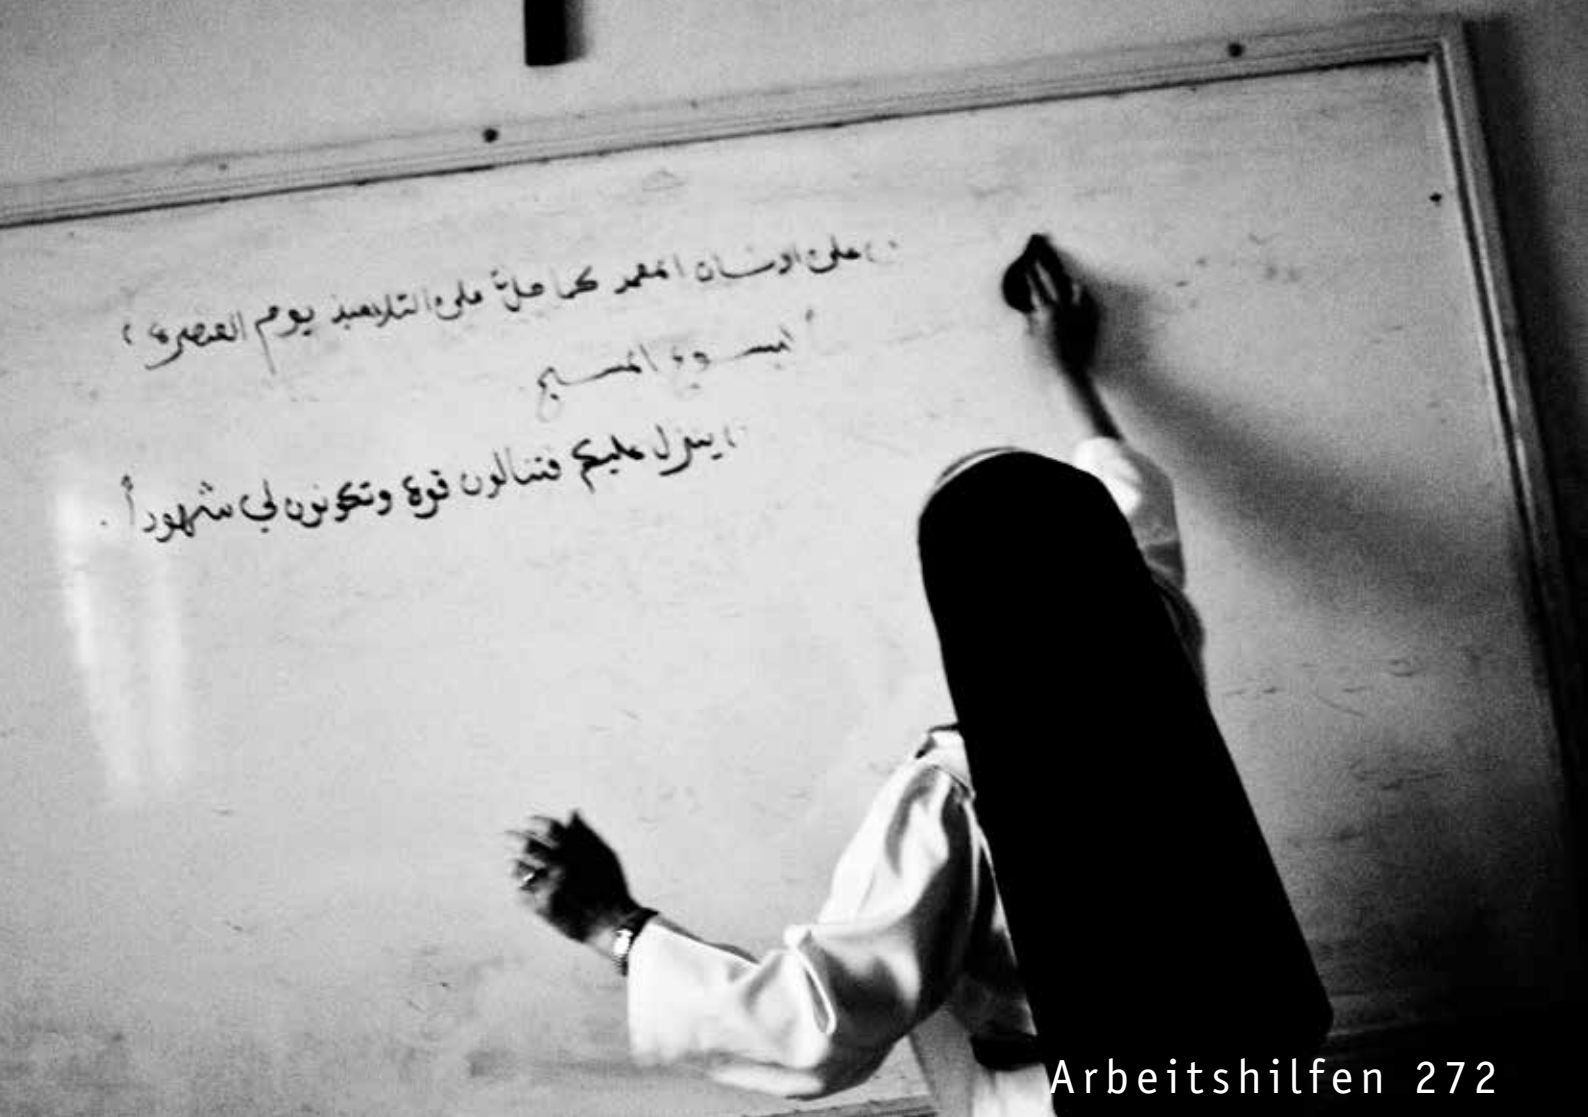 على الانسان المعمد كما حلّ على التلاميذ يوم العنصرة
ليسوع المسيح
ينزل عليكم فتنالون قوة وتكونون لي شهوداً .
Arbeitshilfen 272